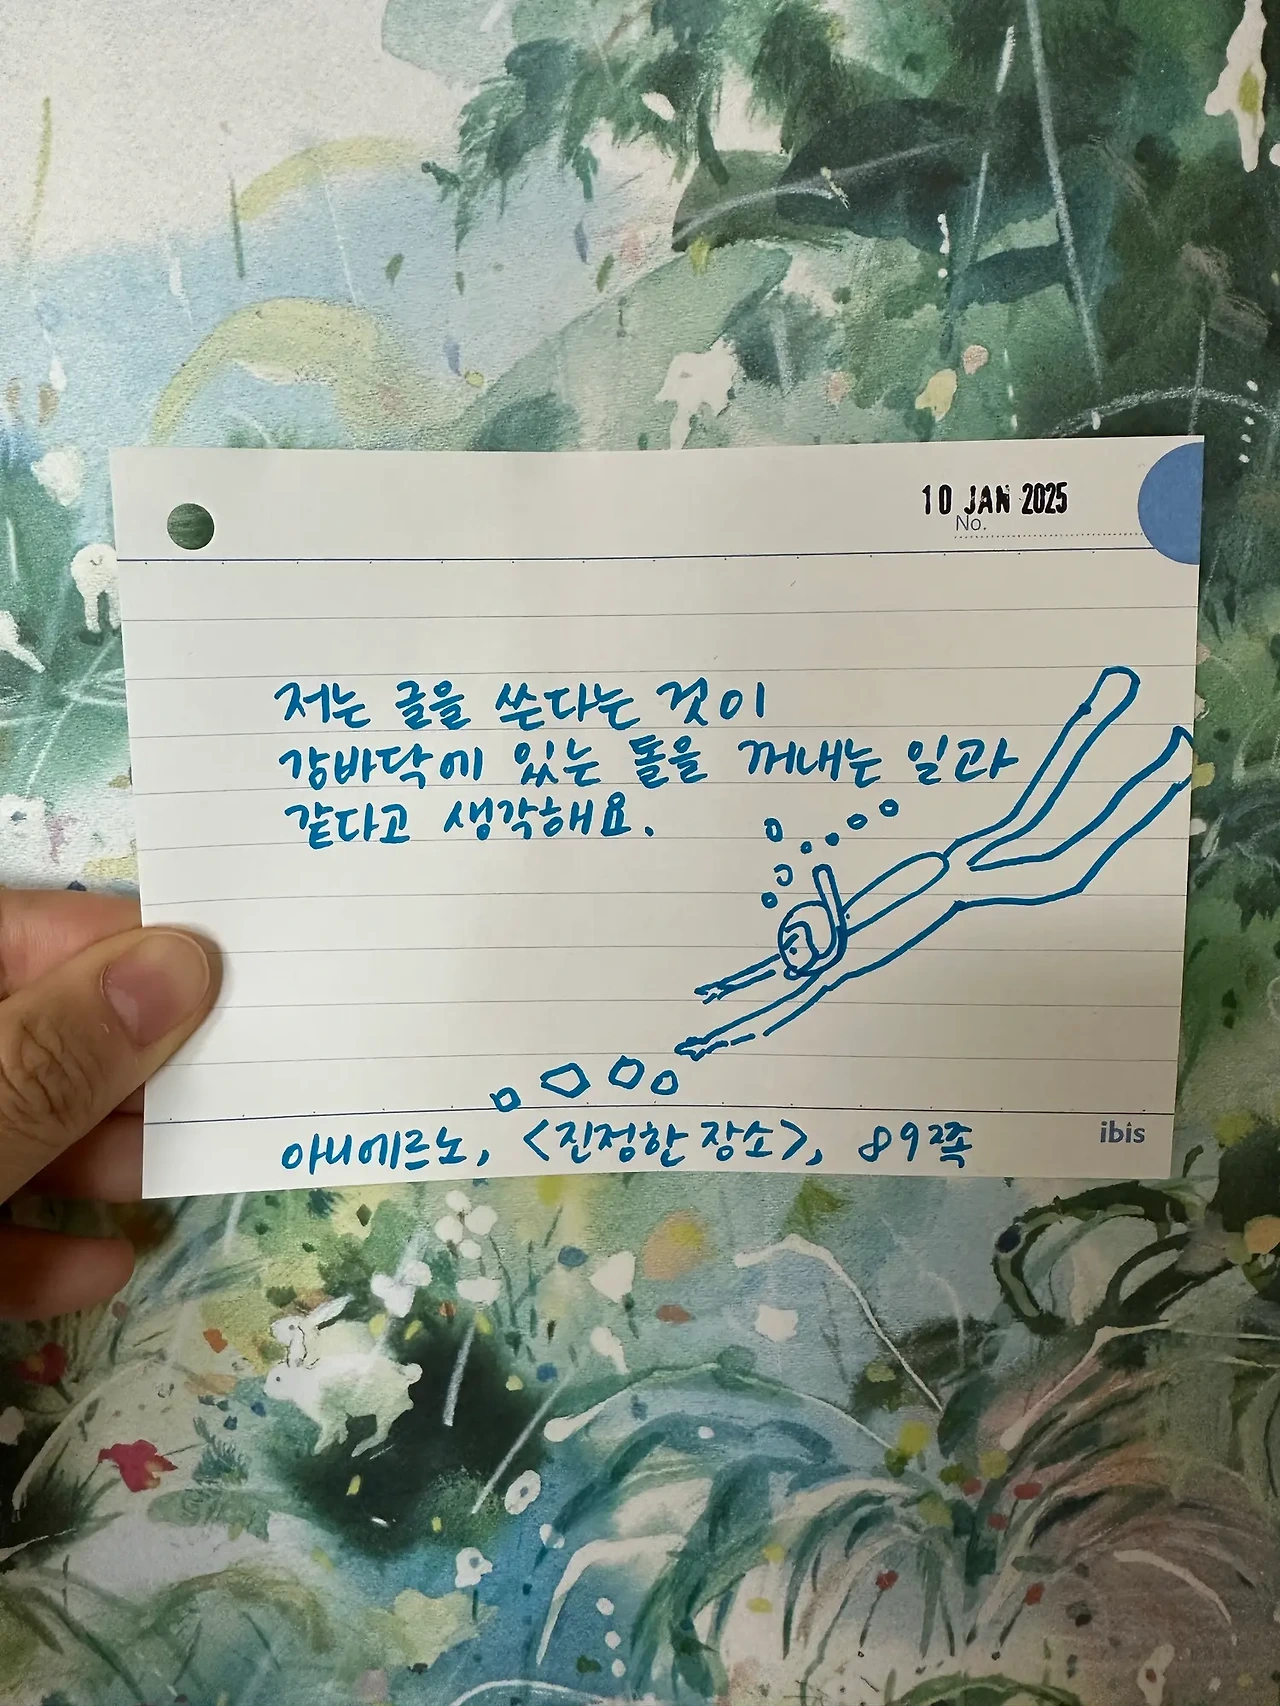 10 JAN 2025
No.
저는 글을 쓴다는 것이
강바닥에 있는 돌을 꺼내는 일과
같다고 생각해요.
아니에르노, <진정한 장소>, 89쪽
ibis